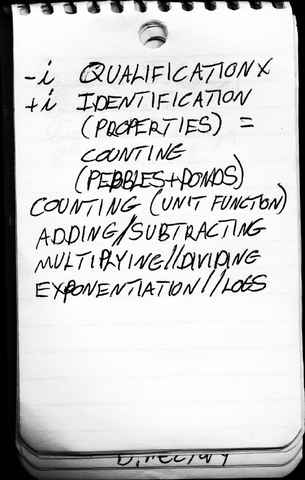 -i QUALIFICATION x
+i IDENTIFICATION
(PROPERTIES) =
COUNTING
(PEBBLES+PONDS)
COUNTING (UNIT FUNCTION)
ADDING//SUBTRACTING
MULTIPLYING//DIVIDING
EXPONENTIATION//LOGS
Directory